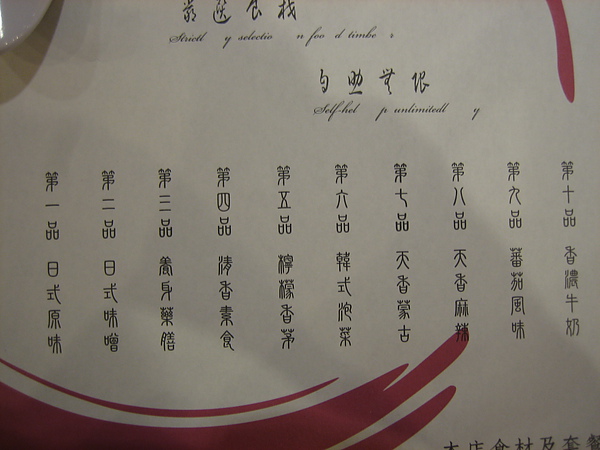 嚴選食材
Strictl y selectio n foo d timbe r
自助無限
Self-hel p unlimitedl y
第十品 香濃牛奶
第九品 蕃茄風味
第八品 天香麻辣
第七品 天香蒙古
第六品 韓式泡菜
第五品 檸檬香茅
第四品 清香素食
第三品 養身藥膳
第二品 日式味噌
第一品 日式原味
本店食材及套餐